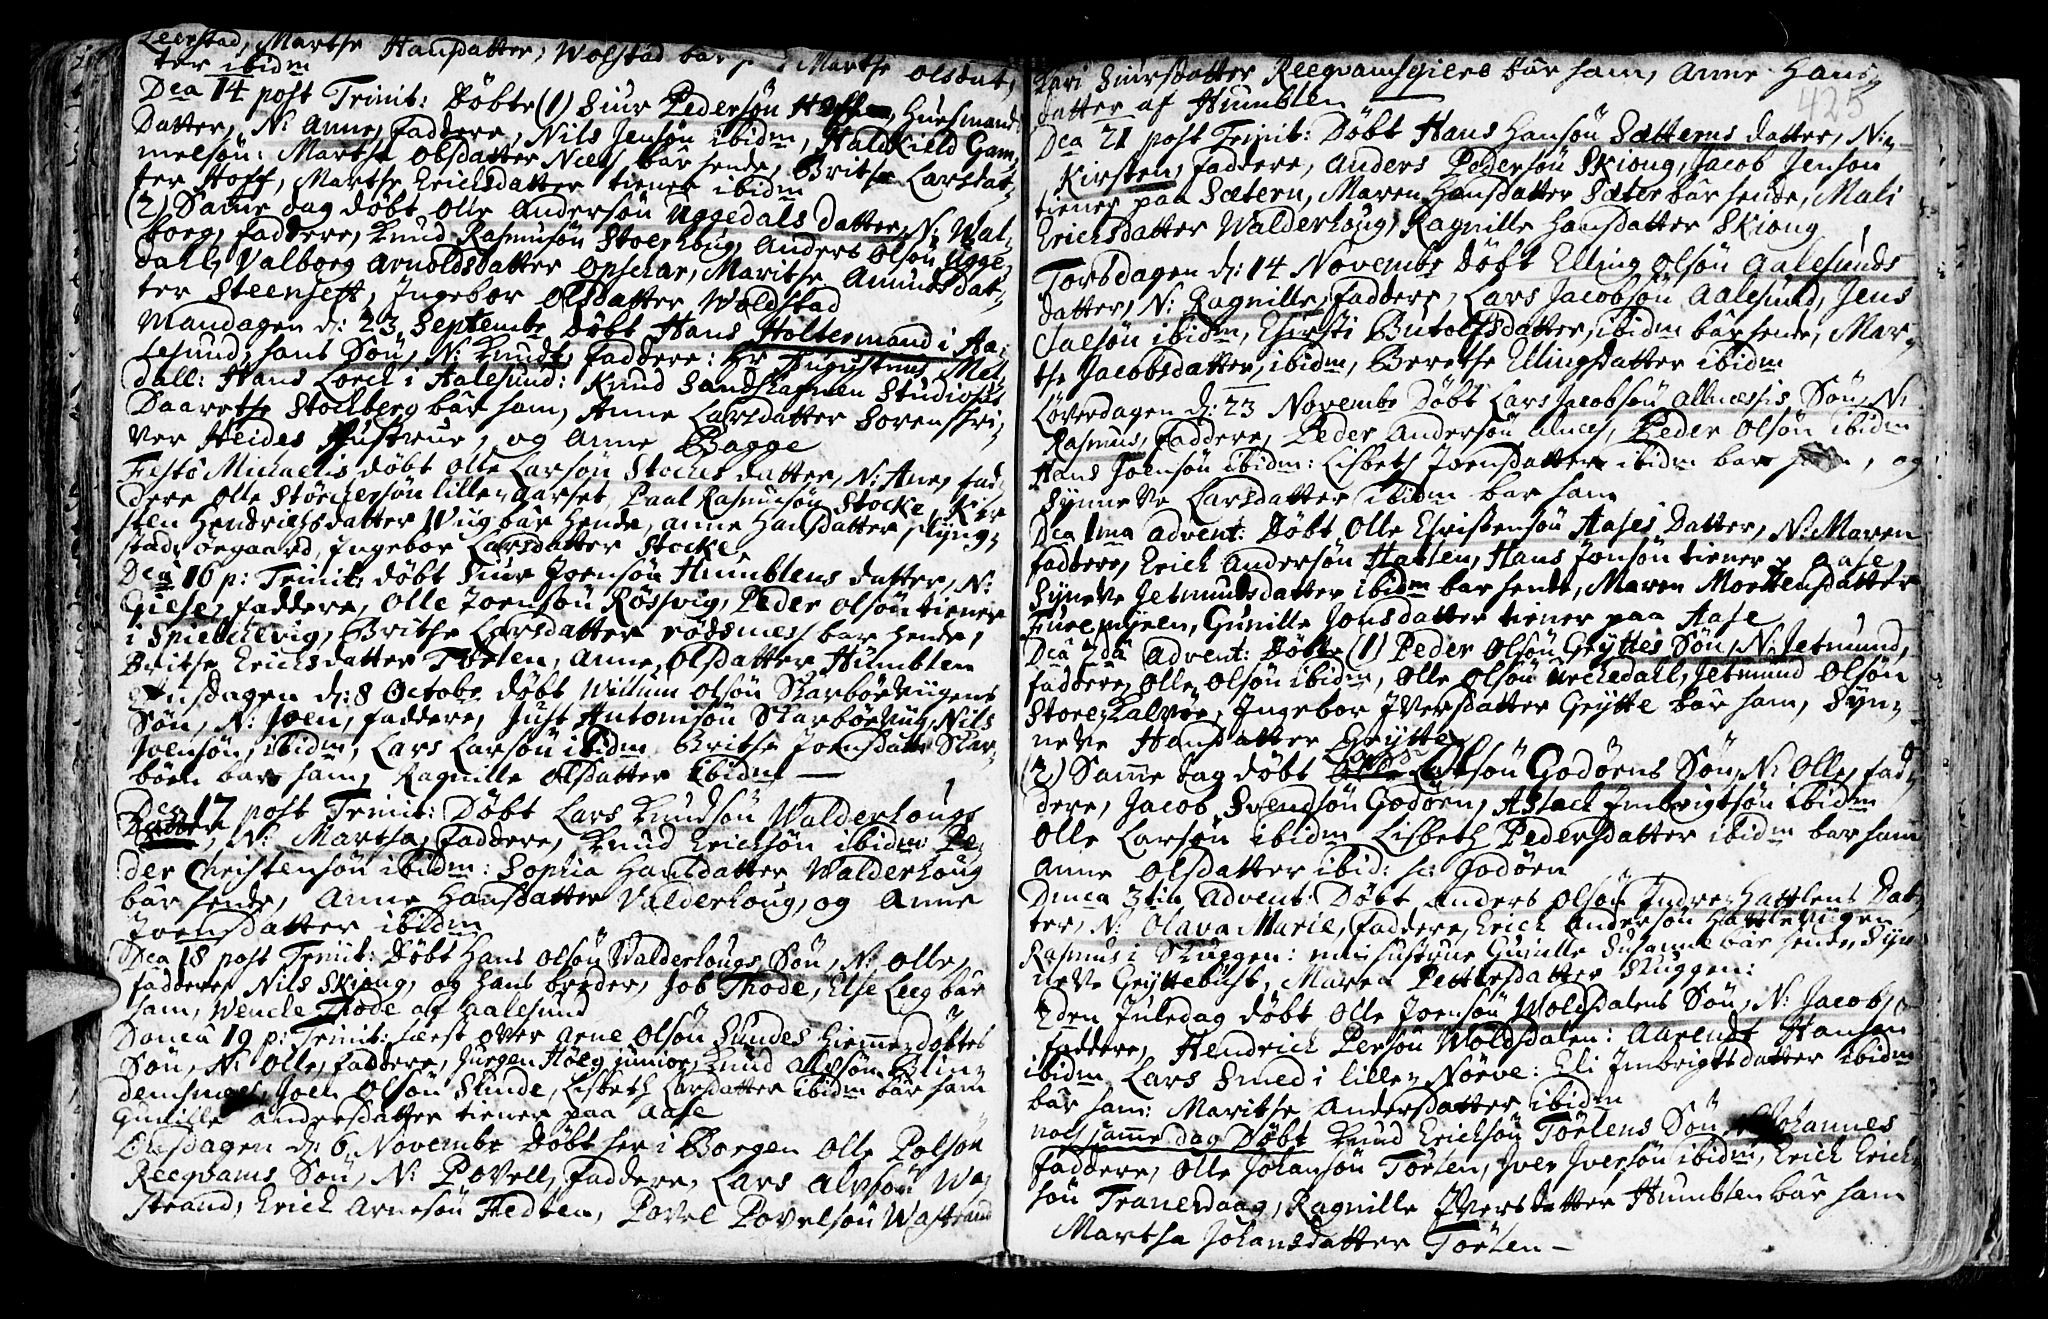 Leerstad, Marthe Hansdatter, Wolstad bar Marthe Olsdat,
ter ibidm
Dca 14 post Trinit: Döbte (1) Siur Pedersön Hoff, Huusmand:
Datter, N: Anne, faddere, Nils Jensön ibidm, Haldkield Gam,
melsön: Marthe Olsdatter Neess bar hende, Brithe Larsdat,
ter Hoff, Marthe Erichsdatter tiener ibidm
(2) Samme dag döbt Olle Andersön Uggedals datter, N: Wal,
borg, faddere, Knud Rasmusön Stoerhoug, Anders Olsön Ugge,
dall, Valborg Arnoldsdatter Opskar, Marithe Amundsdat,
ter Steensett, Ingebor Olsdatter Woldstad
Mandagen d: 23 Septembr Döbt Hans Holtermand i Aa,
lesund, hans Sön, N: Knudt, faddere: Hr Augustinus Mel,
dall: Hans Lorck i Aalesund: Knud Sandhagen Studiosus
Daarethe Stockberg bar ham, Anne Larsdatter Sorenskri,
ver Heides Hustrue, og Anne Bagge
Festo Michaelis döbt Olle Larsön Stockes datter, N: Ane, fad,
dere Olle Störckersön lille Aarset, Paal Rasmusön Stocke, Kir
sten Hendrichsdatter Wiig bar hende, Anne Hansdatter, Flyng,
stad öegaard, Ingebor Larsdatter Stocke
Dca 16 p: Trinit: döbt Siur Joensön Humblens datter, N:
Giese, faddere, Olle Joensön Rössvig, Peder Olsön tiener
i Spielchevig, Brithe Larsdatter rödsness bar hende,
Brithe Erichsdatter Törlen, Anne Olsdatter Humblen
Tiusdagen d: 8 Octobr döbt Willum Olsön Skarböevigens
Sön, N: Joen, faddere, Just Antonisön Skarböeviig, Nils
Joensön, ibidm, Lars Larsön ibidm Brithe Joensdatt: Skar,
böen bar ham, Ragnille Olsdatter ibidm
Dca 17 post Trinit: Döbt Lars Knudsön Walderhougs
Datter, N: Martha, faddere, Knud Erichsön ibidm: Pe,
der Christensön ibidm: Sophia Hansdatter Walderhoug
bar hende, Anne Hansdatter Valderhoug, og Anne
Joensdatter ibidm
Dca 18 post Trinit: Döbt Hans Olsön Walderhougs Sön, N: Olle,
faddere Nils Skiong, og hans broder, Job Thode, Else Leeg bar
ham, Wencle Thode af Aalesund
Domca 19 p: Trinit: læst over Arne Olsön Sundes hiemmedöbtes
Sön, N: Olle, faddere, Jürgen Höeg junior, Knud Alvsön Blin,
demsnes, Joen Olsön Slinde, Lisbeth Larsdatter ibidm bar ham
Gunille Andersdatter tiener paa Aase
Onsdagen d: 6 Novembr döbt her i Borgen Olle Polsön
Reeqvams Sön, N: Povell, faddere, Lars Alvsön Wa,
strand, Erich Arnesön Fedten, Povel Povelsön Wastrand
Kari Siursdatter Reeqvamsgiere bar ham, Anne Hans,
datter af Humblen
425
Dca 21 post Trinit: Döbt Hans Hansön Sætterns datter, N:
Kirsten, faddere, Anders Pedersön Skiong, Jacob Jensön
tiener paa Sætern, Maren Hansdatter Sæter bar hende, Mali
Erichsdatter Walderhoug, Ragnille Hansdatter Skiong
Torsdagen d: 14 Novembr döbt Elling Olsön Aalesunds
datter, N: Ragnille, faddere, Lars Jacobsön Aalesund, Jens
Claesön ibidm, Chirsti Butolfsdatter, ibidm bar hende, Mar,
the Jacobsdatter, ibidm, Berethe Ellingsdatter ibidm
Löverdagen d: 23 Novembr Döbt Lars Jacobsön Allnessis Sön, N:
Rasmus, faddere, Peder Andersön Alnes, Peder Olsön ibidm
Hans Joensön ibidm: Lisbeth Joensdatter ibidm bar ham, og
Synneve Larsdatter ibidm bar ham
Dca 1ma Advent: Döbt Olle Christensön Aases Datter, N: Maren
faddere, Erich Andersön Hatlen, Hans Jonsön tiener p Aase,
Syneve Jetmundsdatter ibidm bar hende, Maren Mortensdatter
Furemyren, Gunille Jonsdatter tiener paa Aase
Dca 2da Advent: Döbte (1) Peder Olsön Gryttes Sön, N: Jetmund,
faddere, Olle Olsön ibidm, Olle Olsön Urchedall, Jetmund Olsön
Store Kalvöe, Ingebor Iversdatter Grytte bar ham, Syn,
neve Hansdatter Grytte
(2) Samme dag döbt Larsön Godöens Sön, N: Olle, fad,
dere, Jacob Svendsön Godöen, Aslack Imbrigtsön ibidm
Olle Larsön ibidm Lisbeth Pedersdatter ibidm bar ham
Anne Olsdatter ibid: sc: Godöen
Dmca 3tia Advent: Döbt Anders Olsön Indre Hattlens Dat,
ter, N: Olava Marie, faddere, Erich Andersön Hattleviigen
Rasmus i Skuggen: min hustrue Gunille Susanne bar hende, Syn
neve Gryttebust, Maren Pettersdatter Skuggen:
2den Juledag döbt Olle Joensön Woldsdalens Sön, N: Jacob,
faddere, Hendrich Persön Woldsdalen: Aarendt Hansen
ibidm Lars Smed i lille Nörve: Eli Imbrigtsdatter ibidm
bar ham: Marithe Andersdatter ibidm
noch samme dag Döbt Knud Erichsön Törlens Sön, N: Johannes
faddere, Olle Johansön Törlen, Iver Iversön ibidm, Erich Erich
sön Tranendaag, Ragnille Iversdatter Humblen bar ham
Martha Johansdatter Törlen